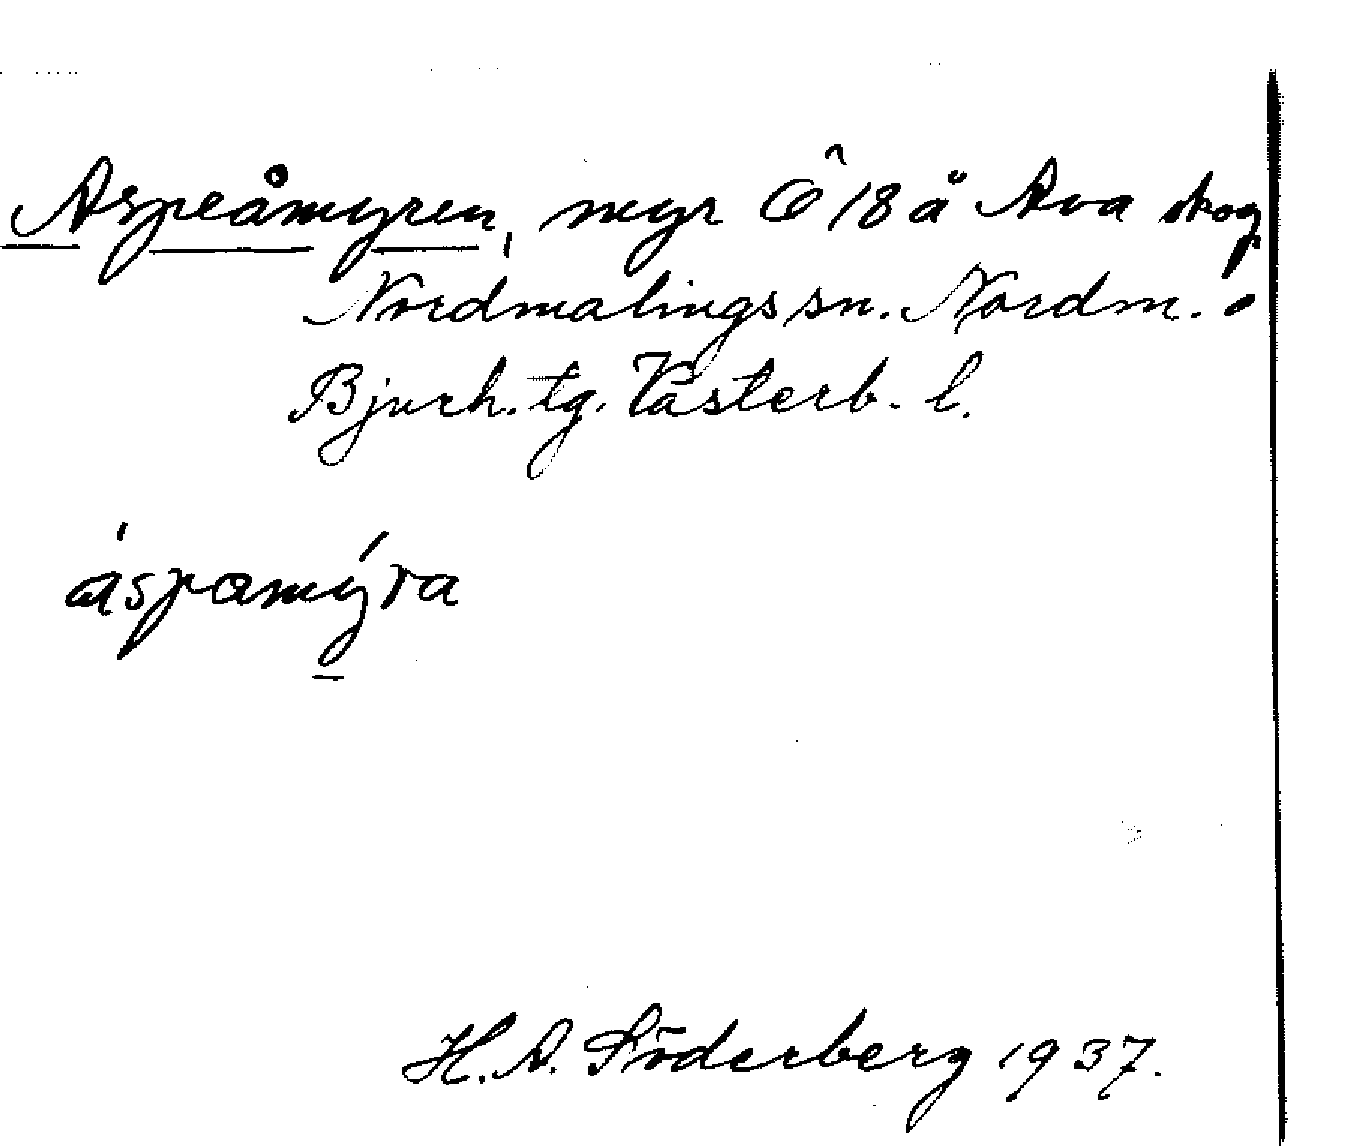 Aspeåmyren, myr Ö 18 å Ava skog
Nordmalings sn. Nordm. o
Bjurh. tg. Västerb. l.
áspamýra
H. A. Söderberg 1937.